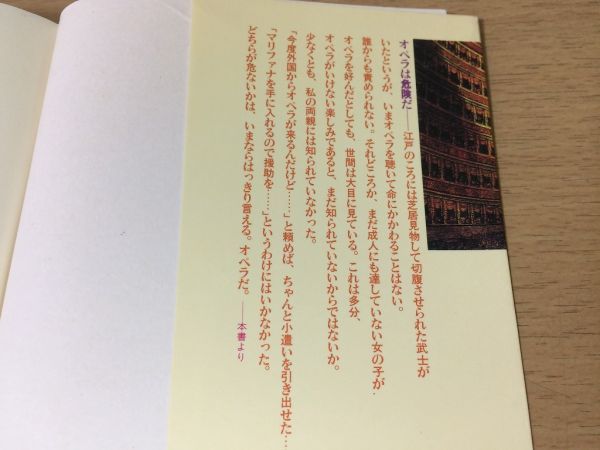 オペラは危険だ――江戸のころには芝居見物して切腹させられた武士が
いたというが、いまオペラを聴いて命にかかわることはない。
誰からも責められない。それどころか、まだ成人にも達していない女の子が
オペラを好んだとしても、世間は大目に見ている。これは多分、
オペラがいけない楽しみであると、まだ知られていないからではないか。
少なくとも、私の両親には知られていなかった。
「今度外国からオペラが来るんだけど……」と頼めば、ちゃんと小遣いを引き出せた…
「マリファナを手に入れるので援助を……」というわけにはいかなかった。
どちらが危ないかは、いまならはっきり言える。オペラだ。
――本書より